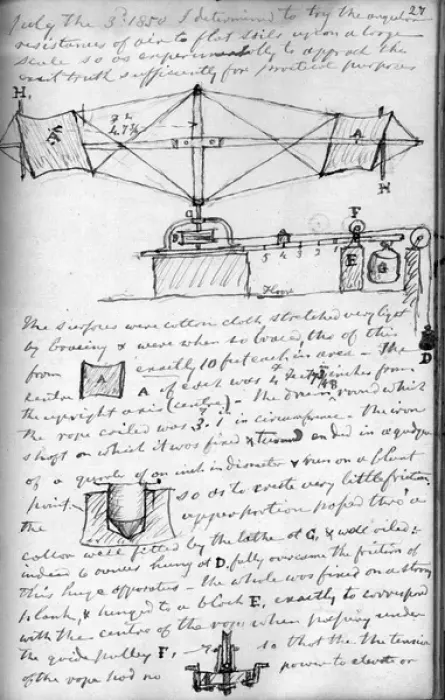 27
July the 3d. 1850 I determined to try the angular
resistances of air to flat sails upon a large
scale so as experimentally to approach the
exact truth sufficiently for practical purposes
H.
7 2
4.7¾
A
A
H
G
F
5 4 3 2 1
E
G
Floor
D
The surfaces were cotton cloth stretched very light
by bracing & were when so braced, thus of this
form A exactly 10 feet each in area – The
centre A, of each was 4 feet inches from
the upright axis (centre) – The drum round which
the rope coiled was 3. 1 in circumference – the iron
shaft on which it was fixed & turned ended in a
of a quarter of an inch in diameter & run on a blunt
point – so as to create very little friction
the upper portion passed thro' a
collar well fitted by the lathe at G, & well oiled:
indeed 2 ounces hung at D, fully overcame the friction of
this huge apparatus – the whole was fixed on a strong
plank, & hinged to a block E, exactly to correspond
with the centre of the rope when passing under
the guide pulley F, so that the tension
of the rope had no power to elevate or